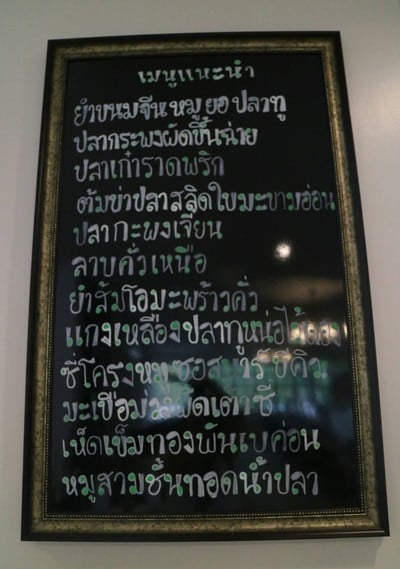 เมนูแนะนำ
ยำขนมจีนหมูยอปลาทู
ปลากระพงผัดขึ้นฉ่าย
ปลาเก๋าราดพริก
ต้มข่าปลาสลิดใบมะขามอ่อน
ปลากะพงเจี๋ยน
ลาบคั่วเหนือ
ยำส้มโอมะพร้าวคั่ว
แกงเหลืองปลาทูหน่อไม้ดอง
ซี่โครงหมูซอสบาร์บีคิว
มะเขือม่วงผัดเต้าซี่
เห็ดเข็มทองพันเบค่อน
หมูสามชั้นทอดน้ำปลา